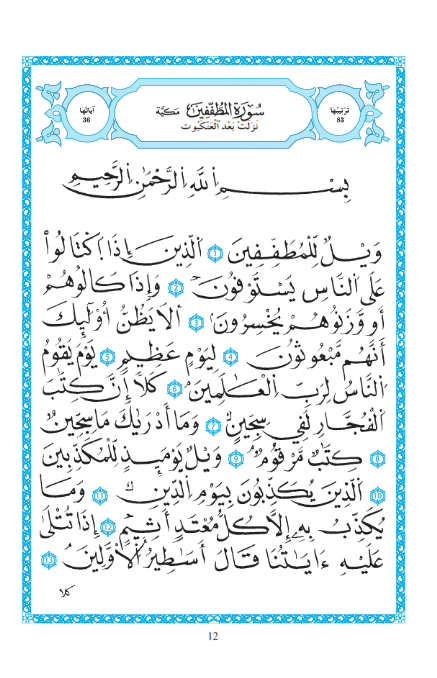 آياتها
36
سُورَةُ الْمُطَفِّفِينَ مَكِّيَّة
نَزَلَتْ بَعْدَ الْعَنْكَبُوت
تَرْتِيبُهَا
83
بِسْمِ اللَّهِ الرَّحْمَٰنِ الرَّحِيمِ
وَيْلٌ لِّلْمُطَفِّفِينَ 1 الَّذِينَ إِذَا اكْتَالُوا
عَلَى النَّاسِ يَسْتَوْفُونَ 2 وَإِذَا كَالُوهُمْ
أَو وَّزَنُوهُمْ يُخْسِرُونَ 3 أَلَا يَظُنُّ أُوْلَٰئِكَ
أَنَّهُم مَّبْعُوثُونَ 4 لِيَوْمٍ عَظِيمٍ 5 يَوْمَ يَقُومُ
النَّاسُ لِرَبِّ الْعَٰلَمِينَ 6 كَلَّا إِنَّ كِتَٰبَ
الْفُجَّارِ لَفِي سِجِّينٍ 7 وَمَا أَدْرَىٰكَ مَا سِجِّينٌ
8 كِتَٰبٌ مَّرْقُومٌ 9 وَيْلٌ يَوْمَئِذٍ لِّلْمُكَذِّبِينَ
10 الَّذِينَ يُكَذِّبُونَ بِيَوْمِ الدِّينِ 11 وَمَا
يُكَذِّبُ بِهِ إِلَّا كُلُّ مُعْتَدٍ أَثِيمٍ 12 إِذَا تُتْلَىٰ
عَلَيْهِ ءَايَٰتُنَا قَالَ أَسَٰطِيرُ الْأَوَّلِينَ 13
كلا
12